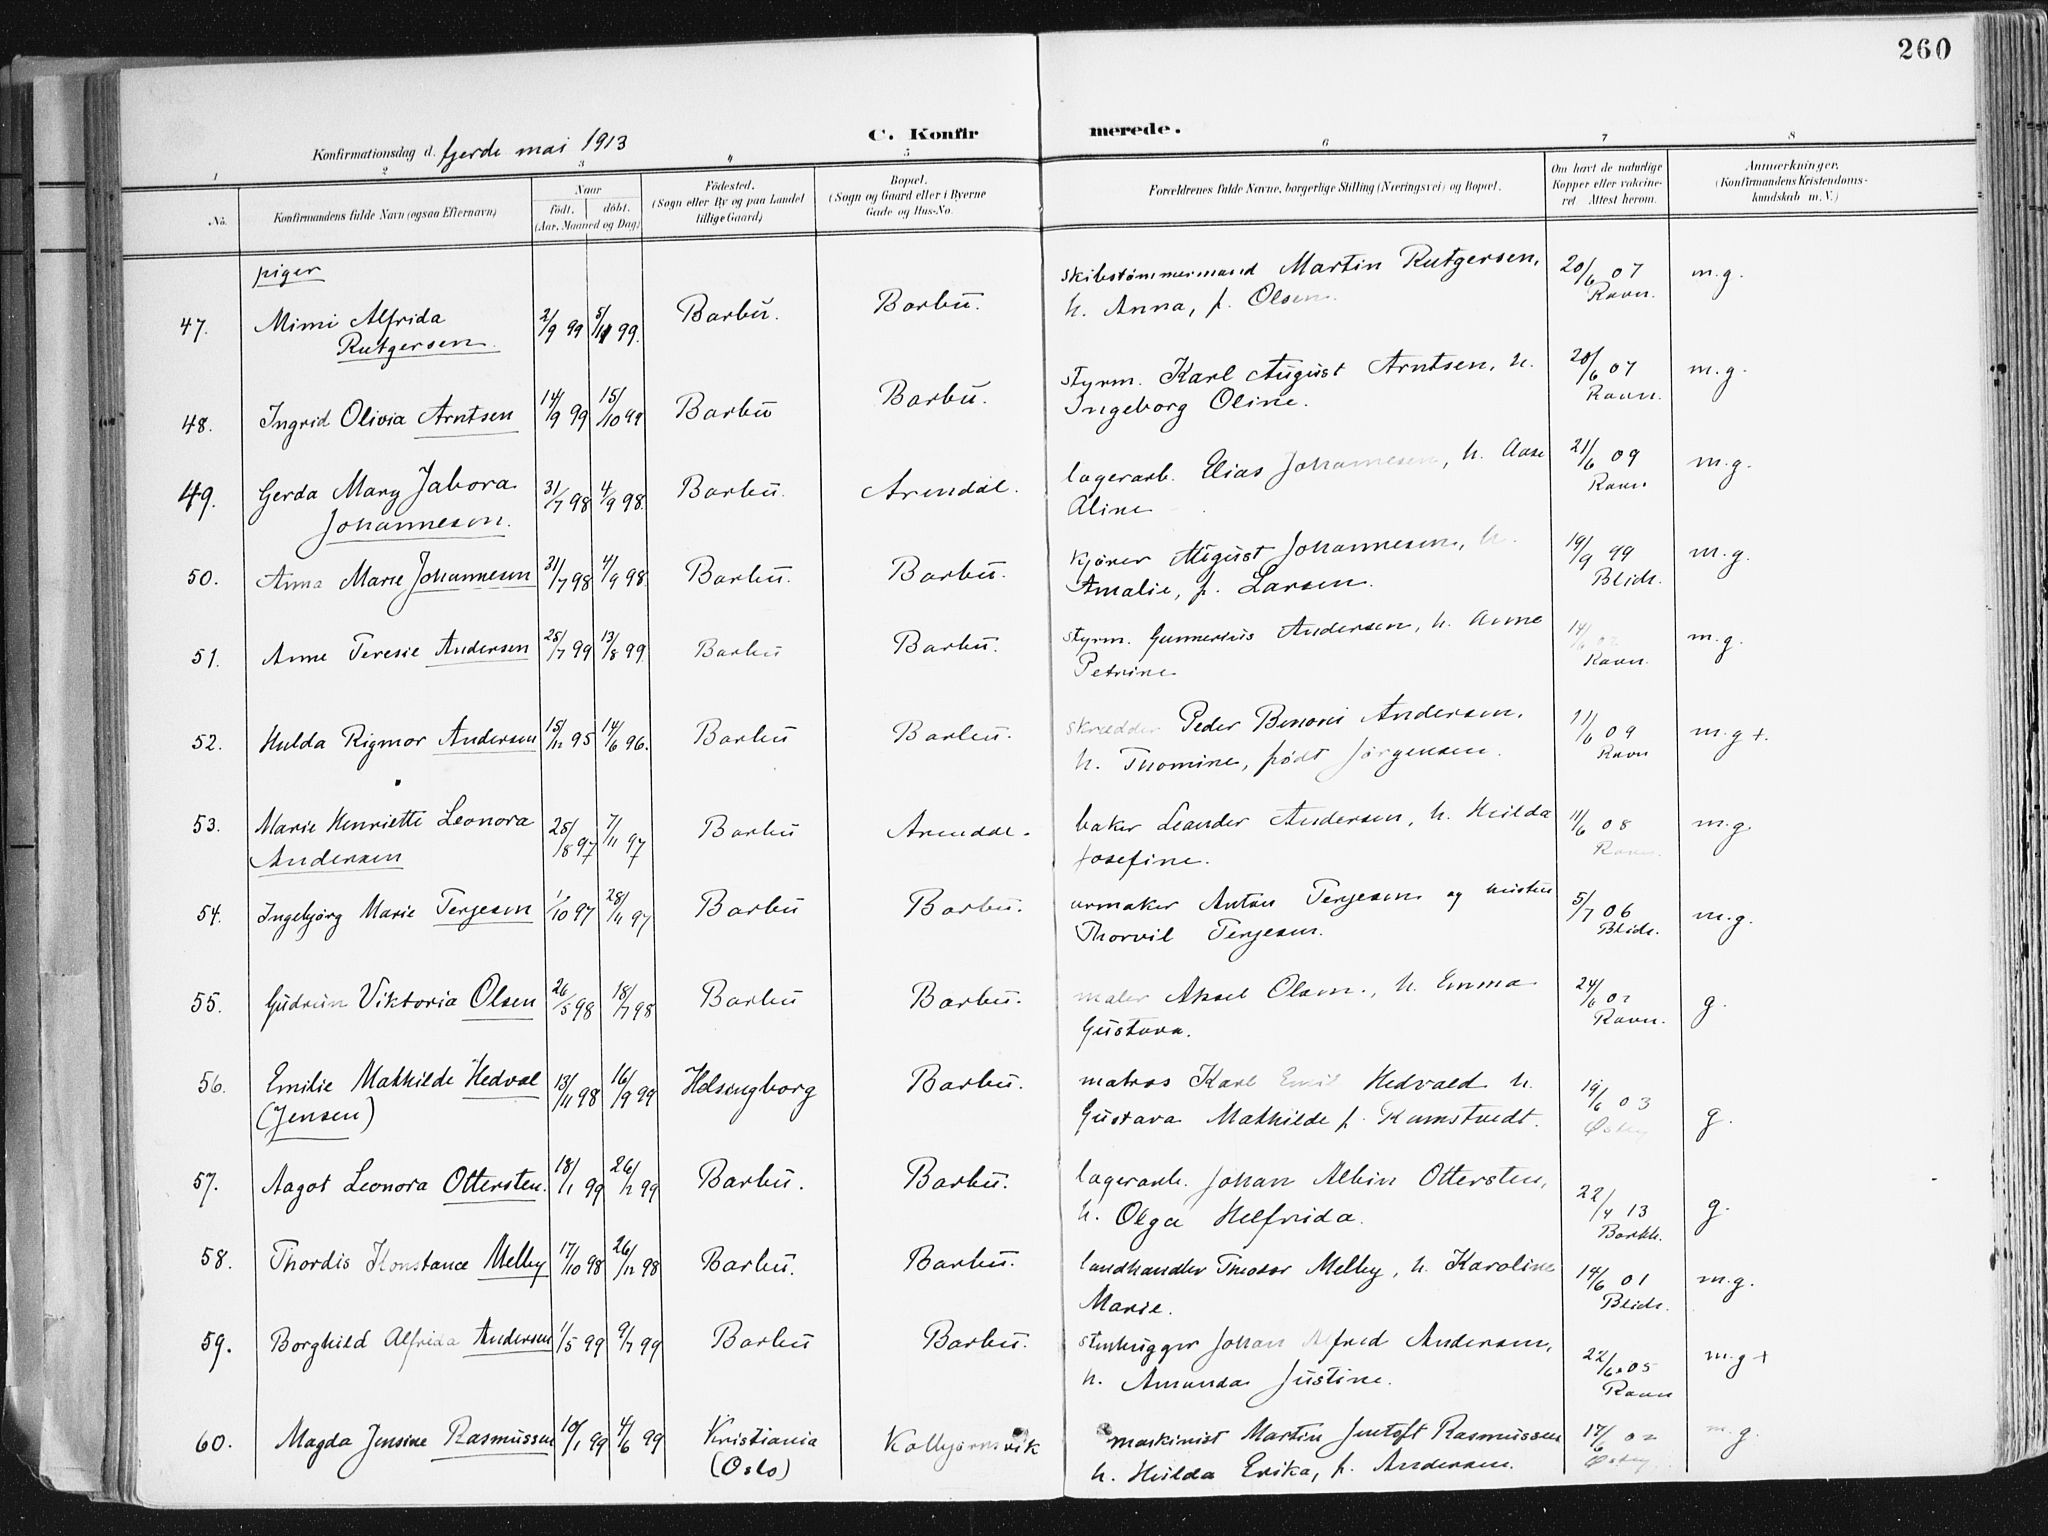 260
C. Konfirmerede.
Konfirmationsdag d. fjerde mai 1913
1 2 3 4 5 6 7 8
No.
Konfirmandens fulde Navn (ogsaa Efternavn)
Naar
født. døbt.
(Aar, Maaned og Dag)
Fødested.
(Sogn eller By og paa Landet
tillige Gaard)
Bopæl.
(Sogn og Gaard eller i Byerne
Gade og Hus-No.
Forældrenes fulde Navne, borgerlige Stilling (Næringsvei) og Bopæl.
Om havt de naturlige
Kopper eller vakcine-
ret. Attest herom.
Anmærkninger.
(Konfirmandens Kristendoms-
kundskab m. V.)
piger
47. Mimi Alfrida 2/9 99 5/11 99. Barbu. Barbu. skibstømmermand Martin Rutgersen, 20/6 07 m.g.
Rutgersen. h. Anna, f. Olsen. Ravn.
48. Ingrid Olivia Arntsen 14/9 99 15/10 99 Barbu Barbu. styrm. Karl August Arntsen, h. 20/6 07 m.g.
Ingeborg Oline. Ravn.
49. Gerda Mary Jabora 31/7 98 4/9 98. Barbu. Arendal. lagerarb. Elias Johannesen, h. Aase 21/6 09 m.g.
Johannesen. Aline Ravn
50. Anna Marie Johannesen 31/7 98 4/9 98 Barbu. Barbu. kjører August Johannesen, h. 19/9 99 m.g.
Amalie, f. Larsen. Blidr.
51. Anne Teresie Andersen 28/7 99 13/8 99 Barbu Barbu. styrm. Gunnerius Andersen, h. Anne 14/6 m.g.
Petrine Ravn.
52. Hulda Rigmor Andersen 15/12 95 14/6 96. Barbu Barbu. skrædder Peder Benoni Andersen, 11/6 09 m.g +.
h. Thomine, født Jørgensen. Ravn
53. Marie Henriette Leonora 25/8 97 7/11 97 Barbu Arendal. baker Leander Andersen, h. Hilda 11/6 08 m.g
Andersen Josefine. Ravn.
54. Ingebjørg Marie Terjesen 1/10 97 28/11 97 Barbu Barbu. urmaker Anton Terjesen og hustru 5/7 06 m.g.
Thorvil Terjesen. Blidr.
55. Gudrun Viktoria Olsen 26/5 98 18/7 98 Barbu Barbu. maler Aksel Olsen., h. Emma 24/6 g.
Gustava. Ravn.
56. Emilie Mathilde Hedval 13/11 98 16/9 99 Helsingborg Barbu. matros Karl Emil Hedvald h. 19/6 03 g.
(Jensen) Gustava Mathilde f. Østby
57. Aagot Leonora Ottersten. 18/1 99 26/2 99 Barbu. Barbu. lagerarb. Johan Albin Ottersten, 22/4 13 g.
h. Olga Helfrida. Barkh.
58. Thordis Konstance Melby 17/10 98 26/12 98 Barbu. Barbu. landhandler Theodor Melby, h. Karoline 14/6 01 m.g.
Marie. Blidr.
59. Borghild Alfrida Andersen 1/5 99 9/7 99 Barbu Barbu. stenhugger Johan Alfred Andersen, 22/6 05 m.g +
h. Amanda Justine. Ravn
60. Magda Jensine Rasmussen 10/1 99 4/6 99 Kristiania Kolbjørnsvik maskinist Martin Jentoft Rasmussen 17/6 02 m.g.
(Oslo) h. Hilda Erika, f. Andersen. Østby